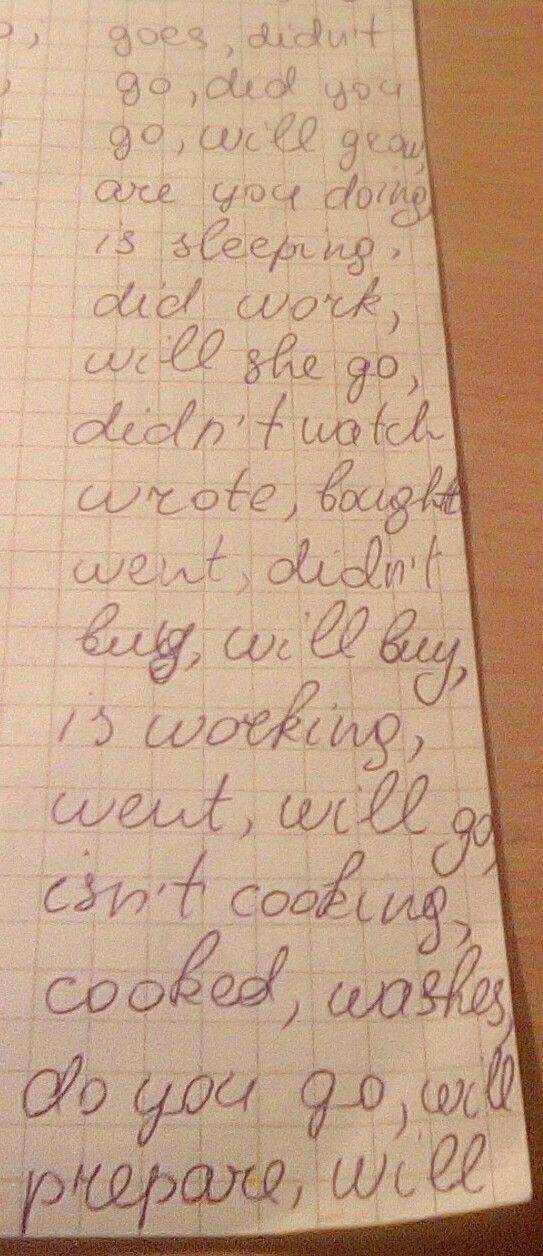 goes, didn't
go, did you
go, will grow,
are you doing,
is sleeping,
did work,
will she go,
didn't watch
wrote, bought
went, didn't
buy, will buy,
is working,
went, will go,
isn't cooking,
cooked, washes,
do you go, will
prepare, will